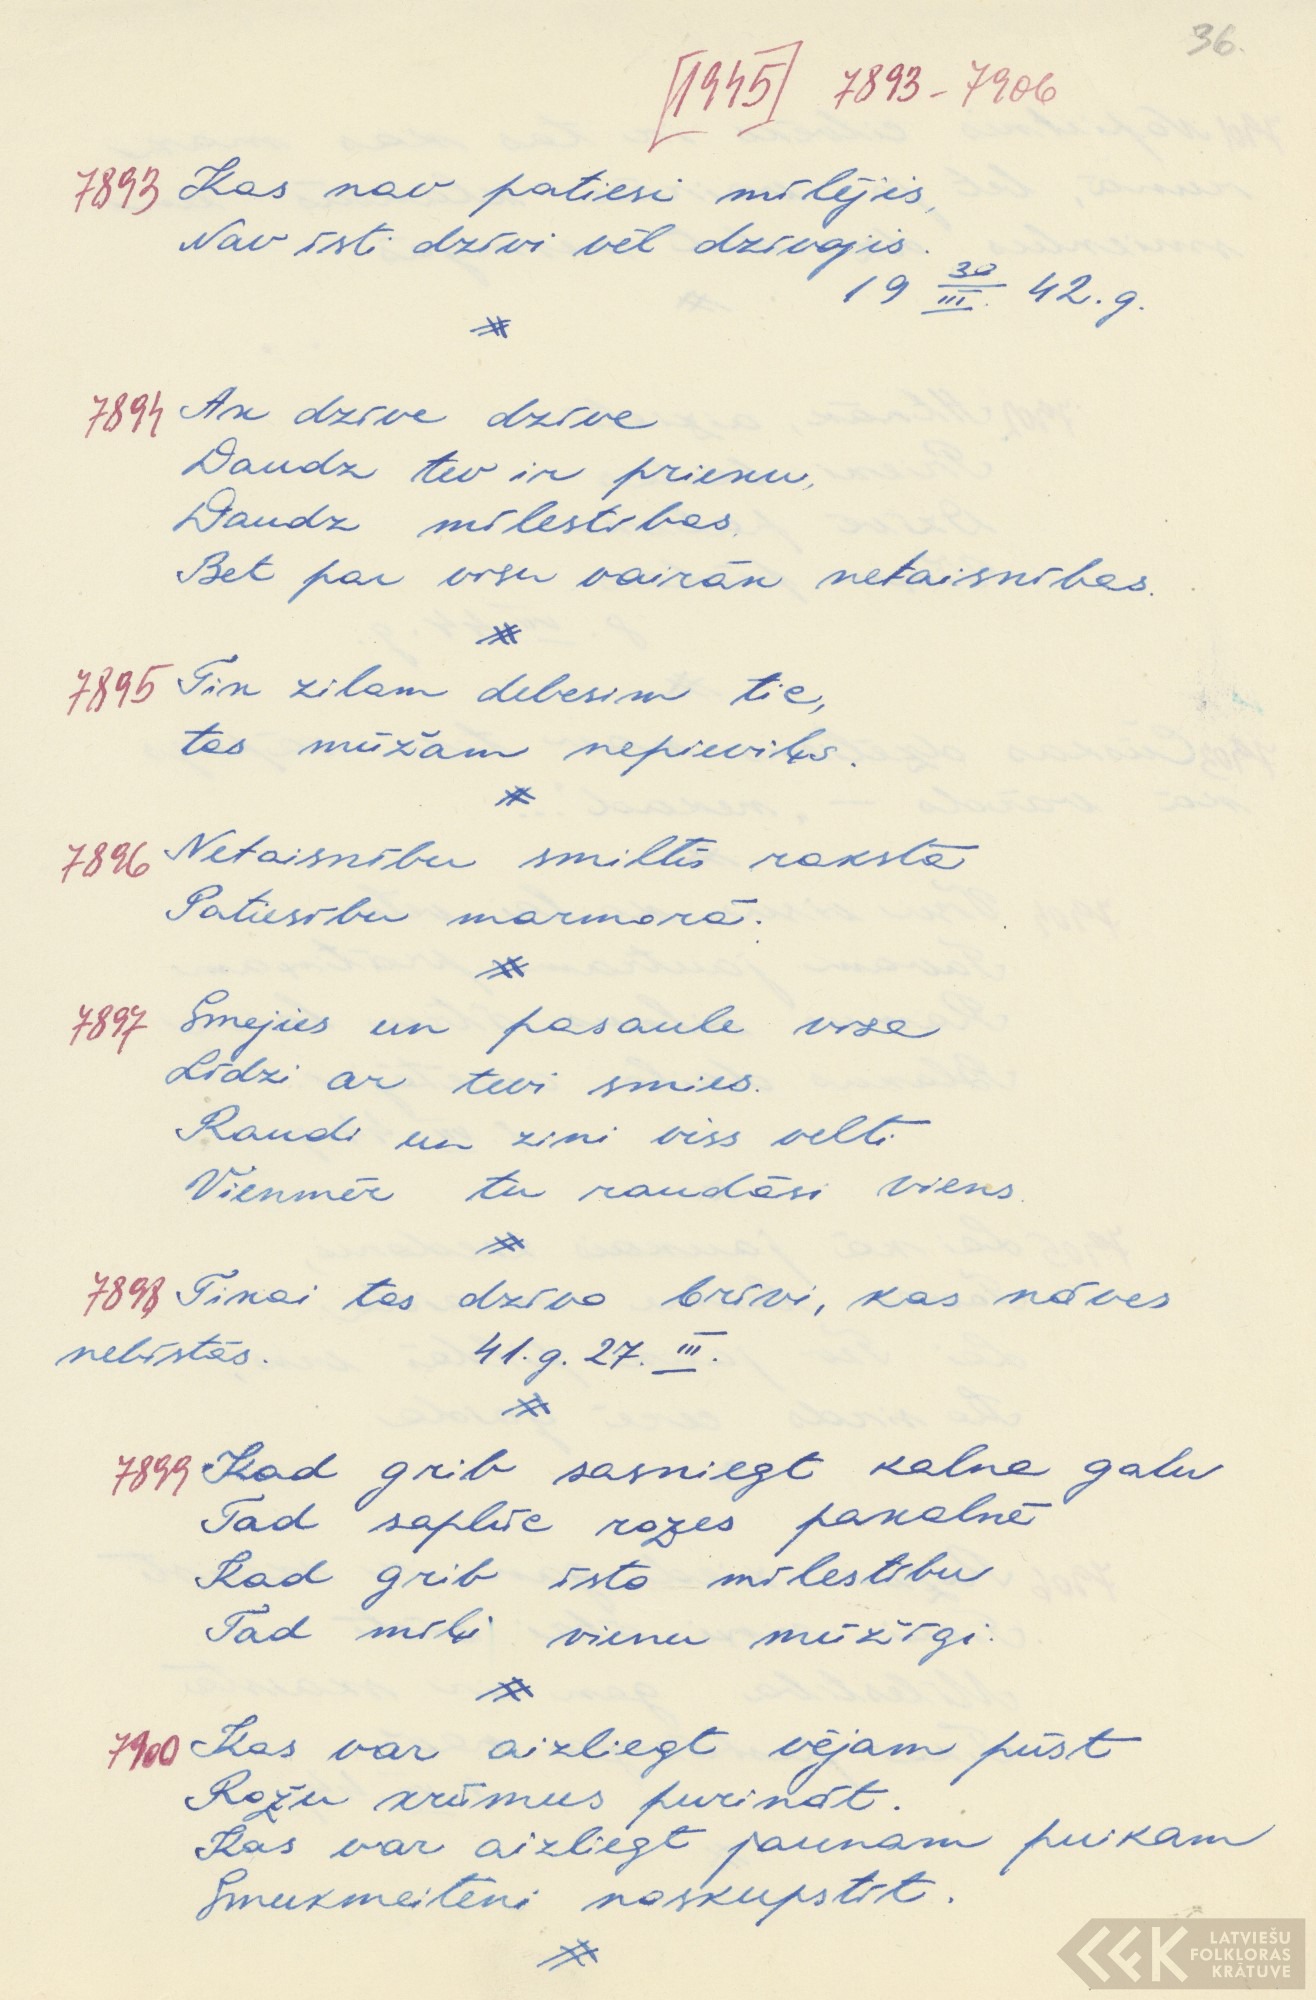 36.
[1945] 7893-7906
7893 Kas nav patiesi mīlējis,
Nav īsti dzīvi vēl dzīvojis.
19 30/III. 42. g.
7894 Ak dzīve dzīve
Daudz tev ir prieku,
Daudz mīlestības,
Bet par visu vairāk netaisnības.
7895 Tik zilam debesim tic,
tas mūžam nepievils.
7896 Netaisnību smiltīs rakstā
Patiesību marmorā.
7897 Smejies un pasaule visa
Līdzi ar tevi smies.
Raudi un zini viss velti
Vienmēr tu raudāsi viens
7898 Tikai tas dzīvo brīvi, kas nāves
nebīstās. 41. g. 27. III.
7899 Kad grib sasniegt kalna galu
Tad saplūc rozes pakalnē
Kad grib īsto mīlestību
Tad mīli vienu mūžīgi.
7900 Kas var aizliegt vējam pūst
Rožu krūmus purināt.
Kas var aizliegt jaunam puikam
Smukmeitēni noskupstīt.
LATVIEŠU
FOLKLORAS
KRĀTUVE